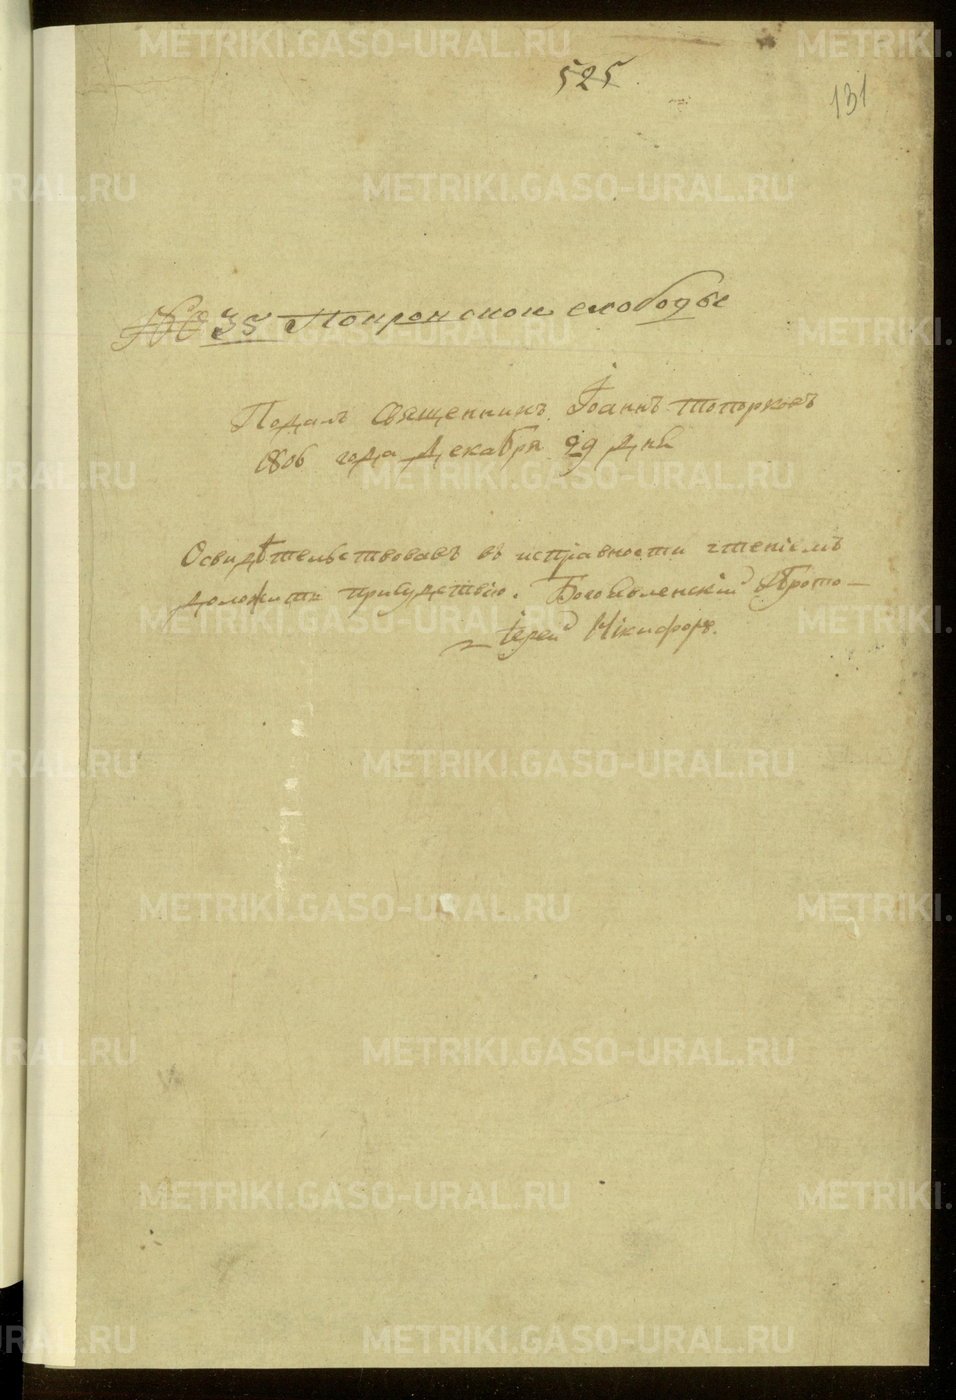 525
131
№ 35 Покровской слободы
Подалъ священникъ Iоаннъ Топорковъ
1806 года декабря 29 дня
Освидѣтельствовавъ въ исправности чтенiемъ
доложить присудствiю. Богоявленскiй Прото-
iерей Никифоръ.